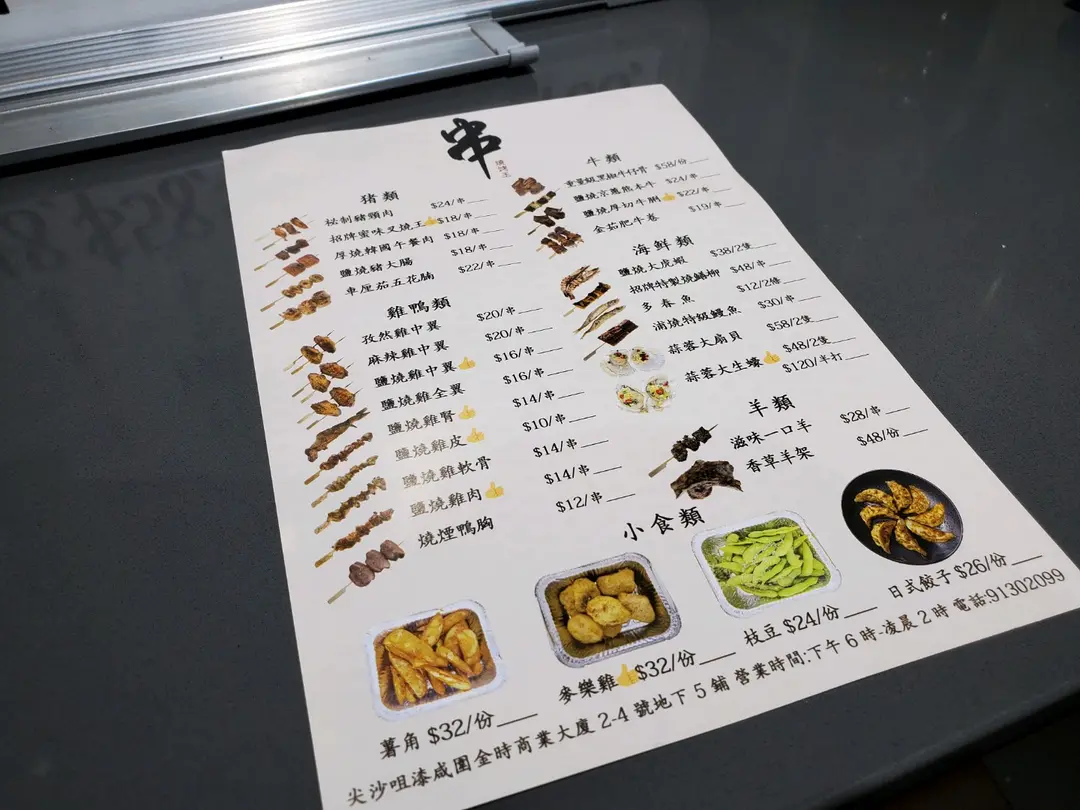 串
燒烤王
猪類
秘制豬頸肉 $24/串
招牌蜜味叉燒王 $18/串
厚燒韓國午餐肉 $18/串
鹽燒豬大腸 $18/串
車厘茄五花腩 $22/串
雞鴨類
孜然雞中翼 $20/串
麻辣雞中翼 $20/串
鹽燒雞中翼 $16/串
鹽燒雞全翼 $16/串
鹽燒雞腎 $14/串
鹽燒雞皮 $10/串
鹽燒雞軟骨 $14/串
鹽燒雞肉 $14/串
燒煙鴨胸 $12/串
牛類
重量級黑椒牛仔骨 $58/份
鹽燒京蔥熊本牛 $24/串
鹽燒厚切牛脷 $22/串
金茄肥牛卷 $19/串
海鮮類
鹽燒大虎蝦 $38/2隻
招牌特製燒鱔柳 $48/串
多春魚 $12/2條
蒲燒特級鰻魚 $30/串
蒜蓉大扇貝 $58/2隻
蒜蓉大生蠔 $48/2隻
$120/半打
羊類
滋味一口羊 $28/串
香草羊架 $48/份
小食類
薯角 $32/份
麥樂雞 $32/份
枝豆 $24/份
日式餃子 $26/份
尖沙咀漆咸圍金時商業大廈 2-4 號地下 5 鋪 營業時間:下午 6 時-凌晨 2 時 電話:91302099